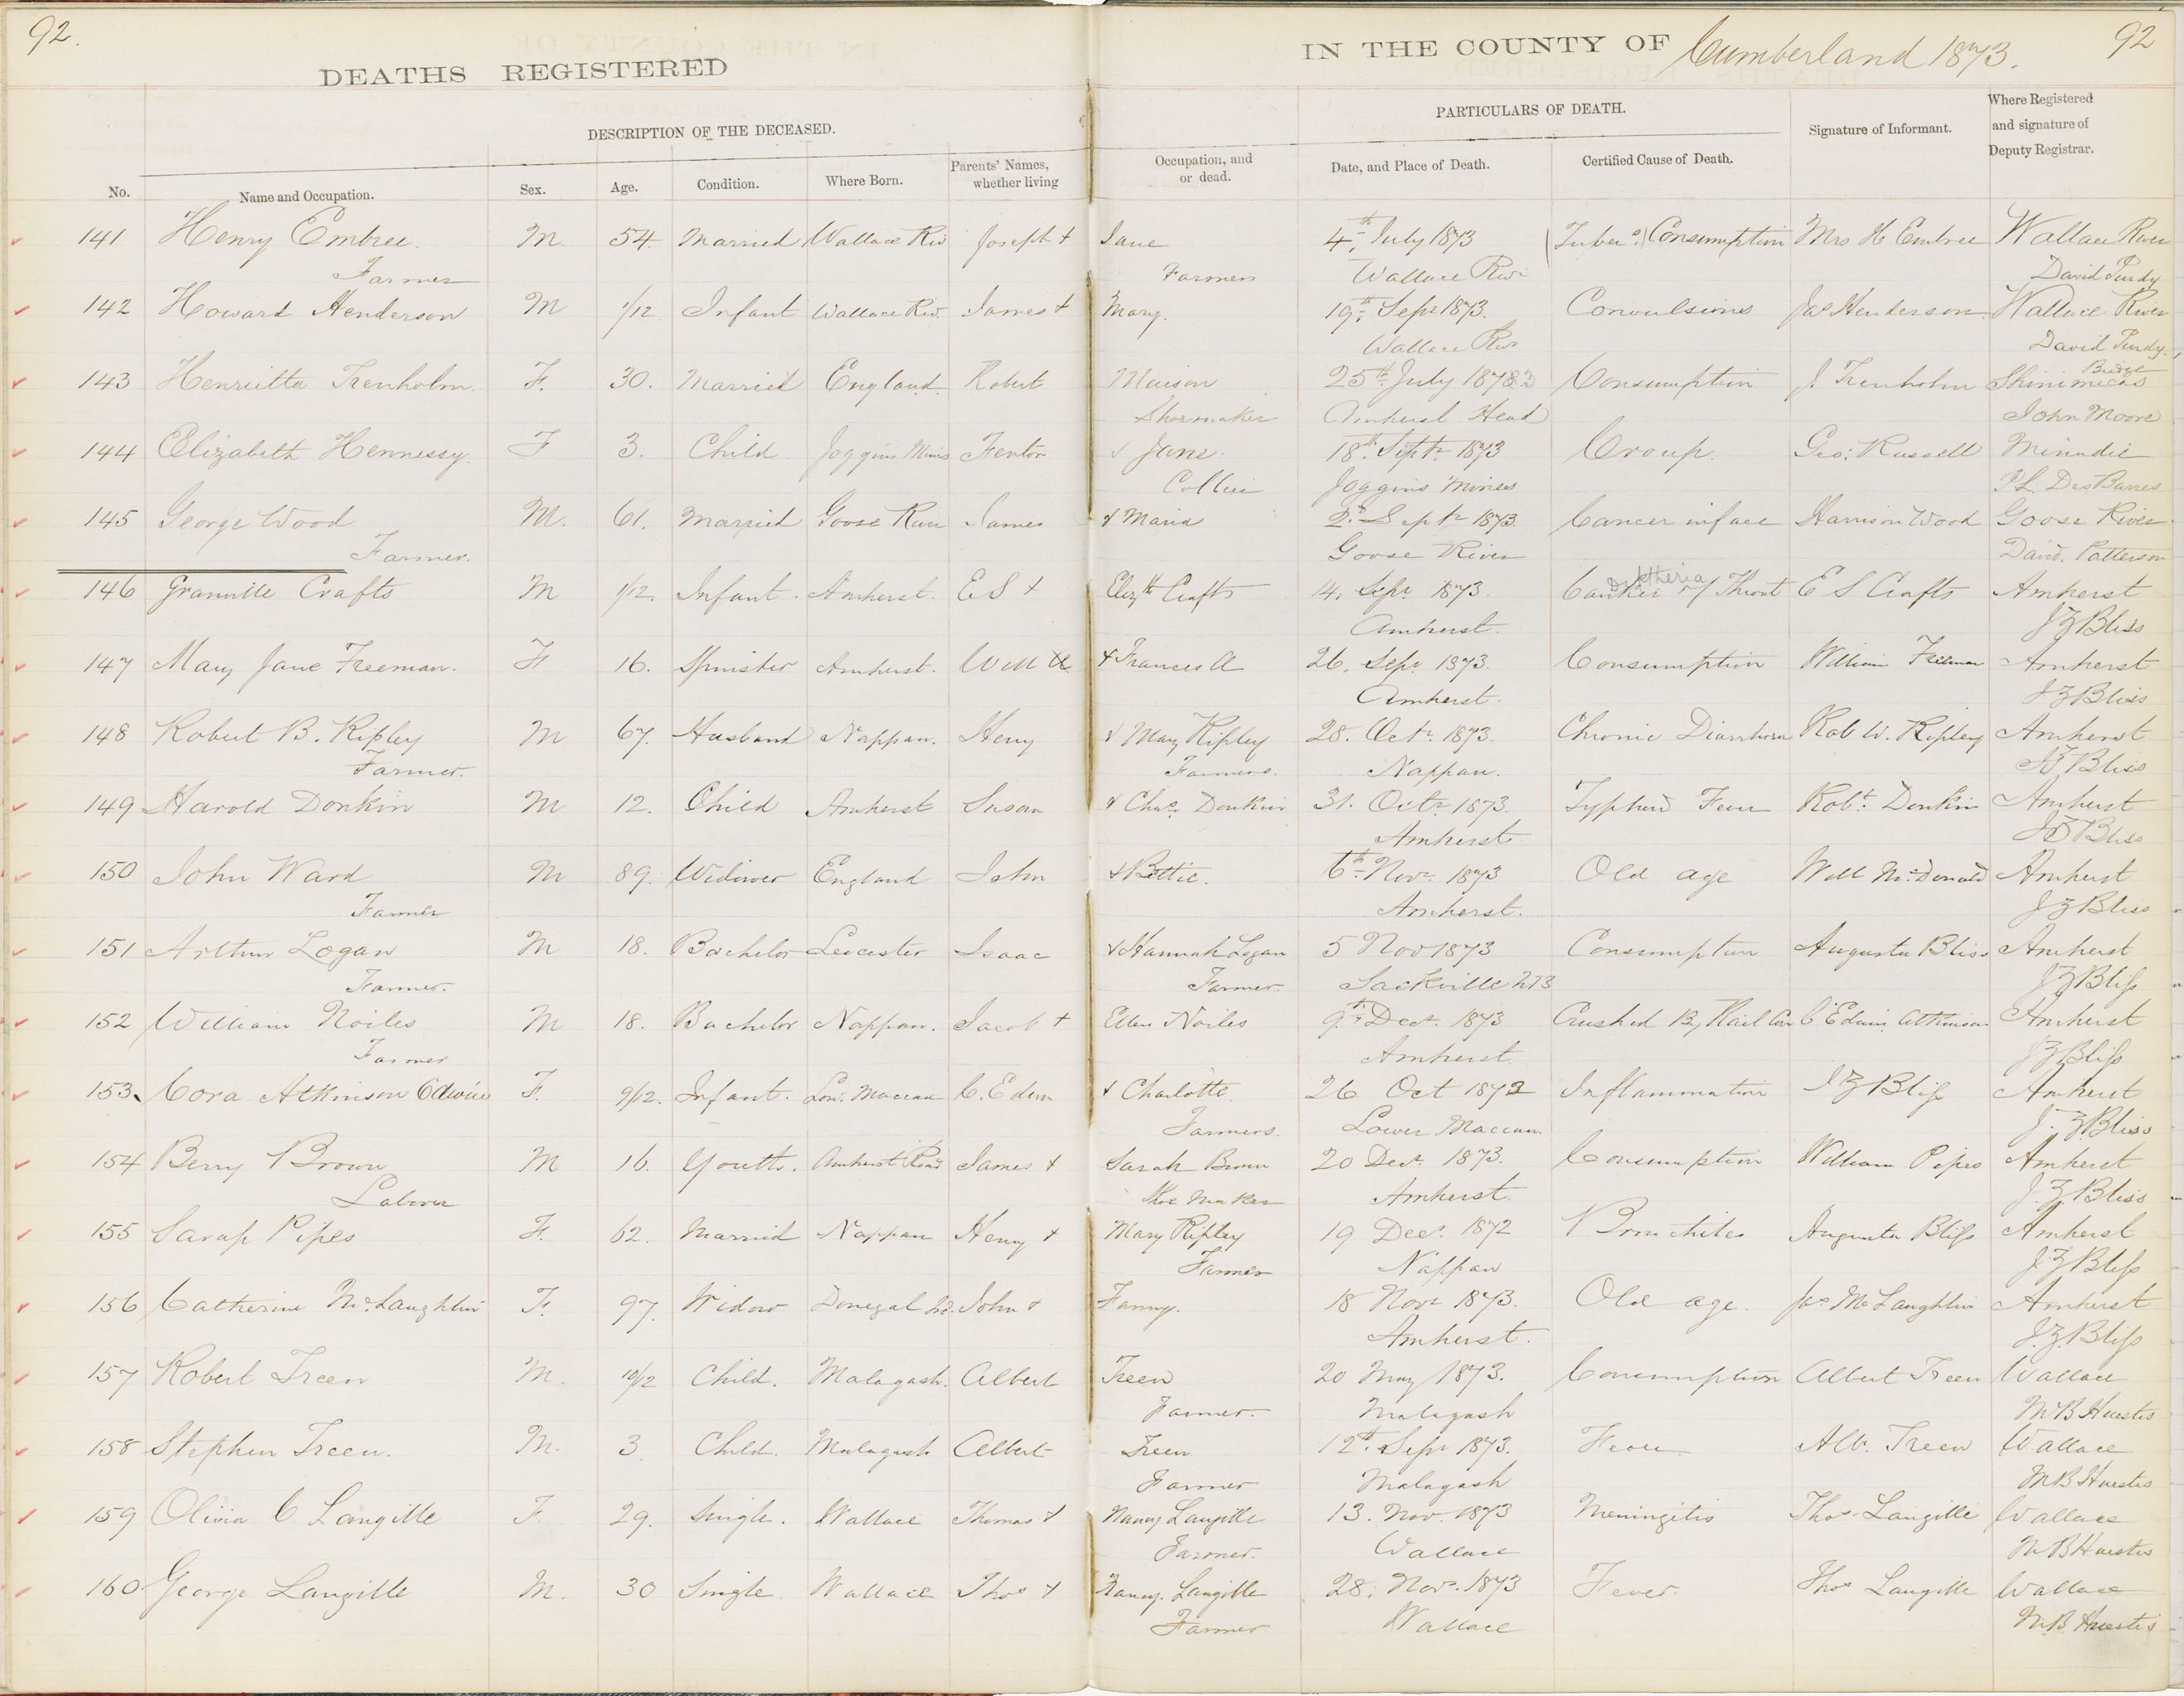 92.
92
DEATHS REGISTERED
IN THE COUNTY OF Cumberland 1873.
DESCRIPTION OF THE DECEASED.
PARTICULARS OF DEATH.
No.
Name and Occupation.
Sex.
Age.
Condition.
Where Born.
Parents' Names, whether living
Occupation, and or dead.
Date, and Place of Death.
Certified Cause of Death.
Signature of Informant.
Where Registered and signature of Deputy Registrar.
141 Henry Embree. M. 54. Married Wallace Riv Joseph + Jane 4th July 1873 (Tuber:) Consumption Mrs H Embree Wallace River
Farmer Farmers Wallace Riv David Purdy
142 Howard Henderson M 1/12 Infant Wallace Riv. James + Mary. 19th Sepr 1873. Convulsions Jas Henderson Wallace River
Wallace Rivr David Purdy.
143 Henrietta Trenholm. F. 30. Married England. Robert Maison 25th July 1873 Consumption J. Trenholm Shinimicas Bridge
Shormaker Amherst Head John Moore
144 Elizabeth Hennessy. F 3. Child Joggins Mines Fenton + Jane. 18th Septr 1873 Croup. Geo: Russell Minudie
Collier Joggins Mines P.L. DesBarres
145 George Wood M. 61. Married Goose River James + Maria 2d Septr 1873. Cancer in face Harrison Wood Goose River
Farmer. Goose River David. Patterson
146 Granville Crafts M 1/12. Infant. Amherst. E S + Elizth Crafts 14. Sepr 1873. Canker of Throat E S Crafts Amherst
Amherst. J Z Bliss
147 Mary Jane Freeman. F 16. Spinster Amherst. Will A + Frances A 26. Sepr 1873. Consumption William Freeman Amherst
Amherst. J Z Bliss
148 Robert B. Ripley M 67. Husband Nappan. Henry + Mary Ripley 28. Octr. 1873. Chronic Diarrhoea Rob W. Ripley Amherst
Farmer. Farmers. Nappan. J Z Bliss
149 Harold Donkin M 12. Child Amherst Susan + Chas. Donkin 31. Octr. 1873. Typhoid Fever Robt. Donkin Amherst
Amherst J Z Bliss
150 John Ward M 89. Widower England John + Bettie. 6th Novr. 1873 Old age Will McDonald Amherst
Farmer Amherst. J Z Bliss
151 Arthur Logan M 18. Bachelor Leicester Isaac + Hannah Logan 5 Nov 1873 Consumption Augusta Bliss Amherst
Farmer. Farmer. Sackville NB J Z Bliss
152 William Noiles M 18. Bachelor Nappan. Jacob + Ellen Noiles 9th Decr. 1873 Crushed By Rail Car C Edwin Atkinson Amherst
Farmer Amherst. J Z Bliss
153 Cora Atkinson Edwin F. 9/12. Infant. Low. Maccan C. Edwin + Charlotte. 26 Oct 1872 Inflammation J Z Bliss Amherst
Farmers. Lower Maccan J. Z. Bliss
154 Berry Brown M 16. Youth. Amherst Road James + Sarah Brown 20 Decr. 1873. Consumption William Pipes Amherst
Laborer Shoe Maker Amherst. J. Z Bliss
155 Sarah Pipes F. 62. Married Nappan Henry + Mary Ripley 19 Decr. 1872 Bronchites Augusta Bliss Amherst
Farmer Nappan J Z Bliss
156 Catherine McLaughlin F. 97. Widow Donegal Ird. John + Fanny. 18 Novr 1873. Old age. Jas McLaughlin Amherst
Amherst. J. Z. Bliss
157 Robert Treen M. 10/12 Child. Malagash. Albert Treen 20 May 1873. Consumption Albert Treen Wallace
Farmer. Malagash M B Huestis
158 Stephen Treen. M. 3 Child. Malagash Albert Treen 12th. Sepr 1873. Fever Alb. Treen Wallace
Farmer Malagash M B Huestis
159 Olivia C. Langille F. 29. Single. Wallace Thomas + Nancy Langille 13. Nov. 1873 Meningitis Thos Langille Wallace
Farmer. Wallace M B Huestis
160 George Langille M. 30 Single Wallace Thos + Nancy. Langille 28. Nov. 1873 Fever. Thos Langille Wallace
Farmer Wallace M. B. Huestis